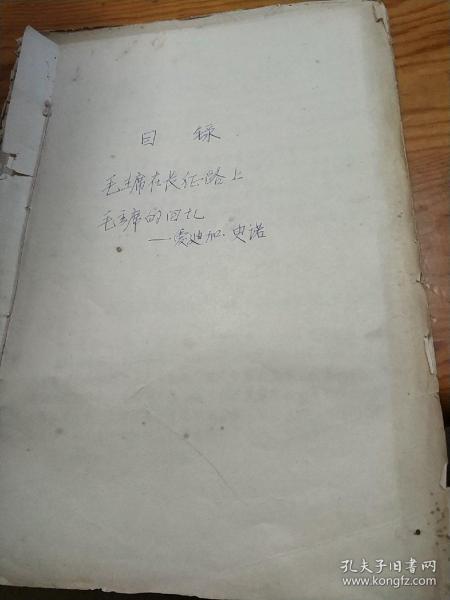 目 录
毛主席在长征路上
毛主席的回忆
——爱迪加·史诺
孔夫子旧书网
www.kongfz.com